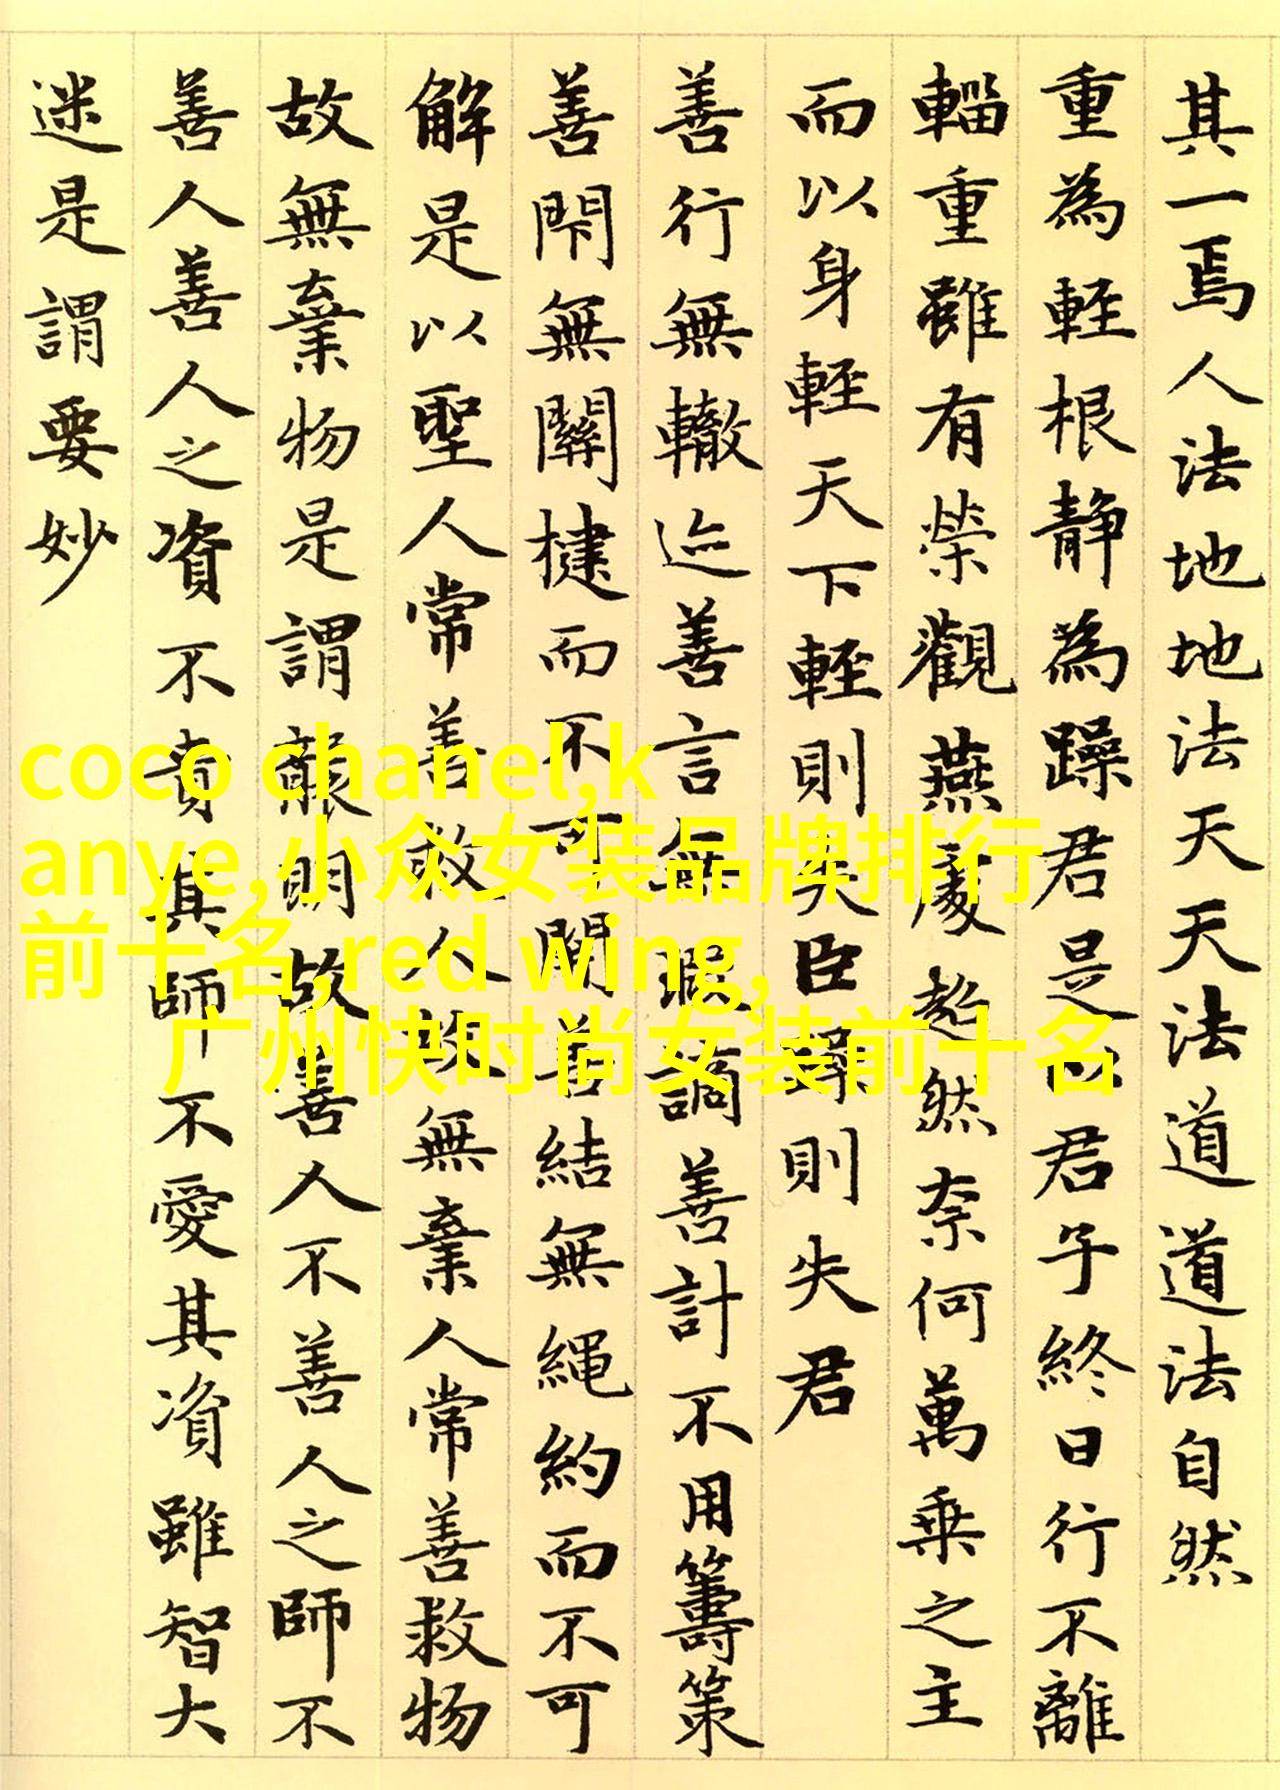 其一焉人法地地法天天法道道法自然
重為輕根靜為躁君是以君子終日行不離
輜重雖有榮觀燕處超然奈何萬乘之主
而以身輕天下輕則失臣躁則失君
善行無轍迹善言無瑕謫善計不用籌策
善閇無關楗而不可開善結無繩約而不可
解是以聖人常善救人故無棄人常善救物
故無棄物是謂襲明故善人不善人之師不
善人善人之資不貴其師不愛其資雖智大
迷是謂要妙
coco chanel,k
anye,小众女装品牌排行
前十名,red wing,
广州快时尚女装前十名